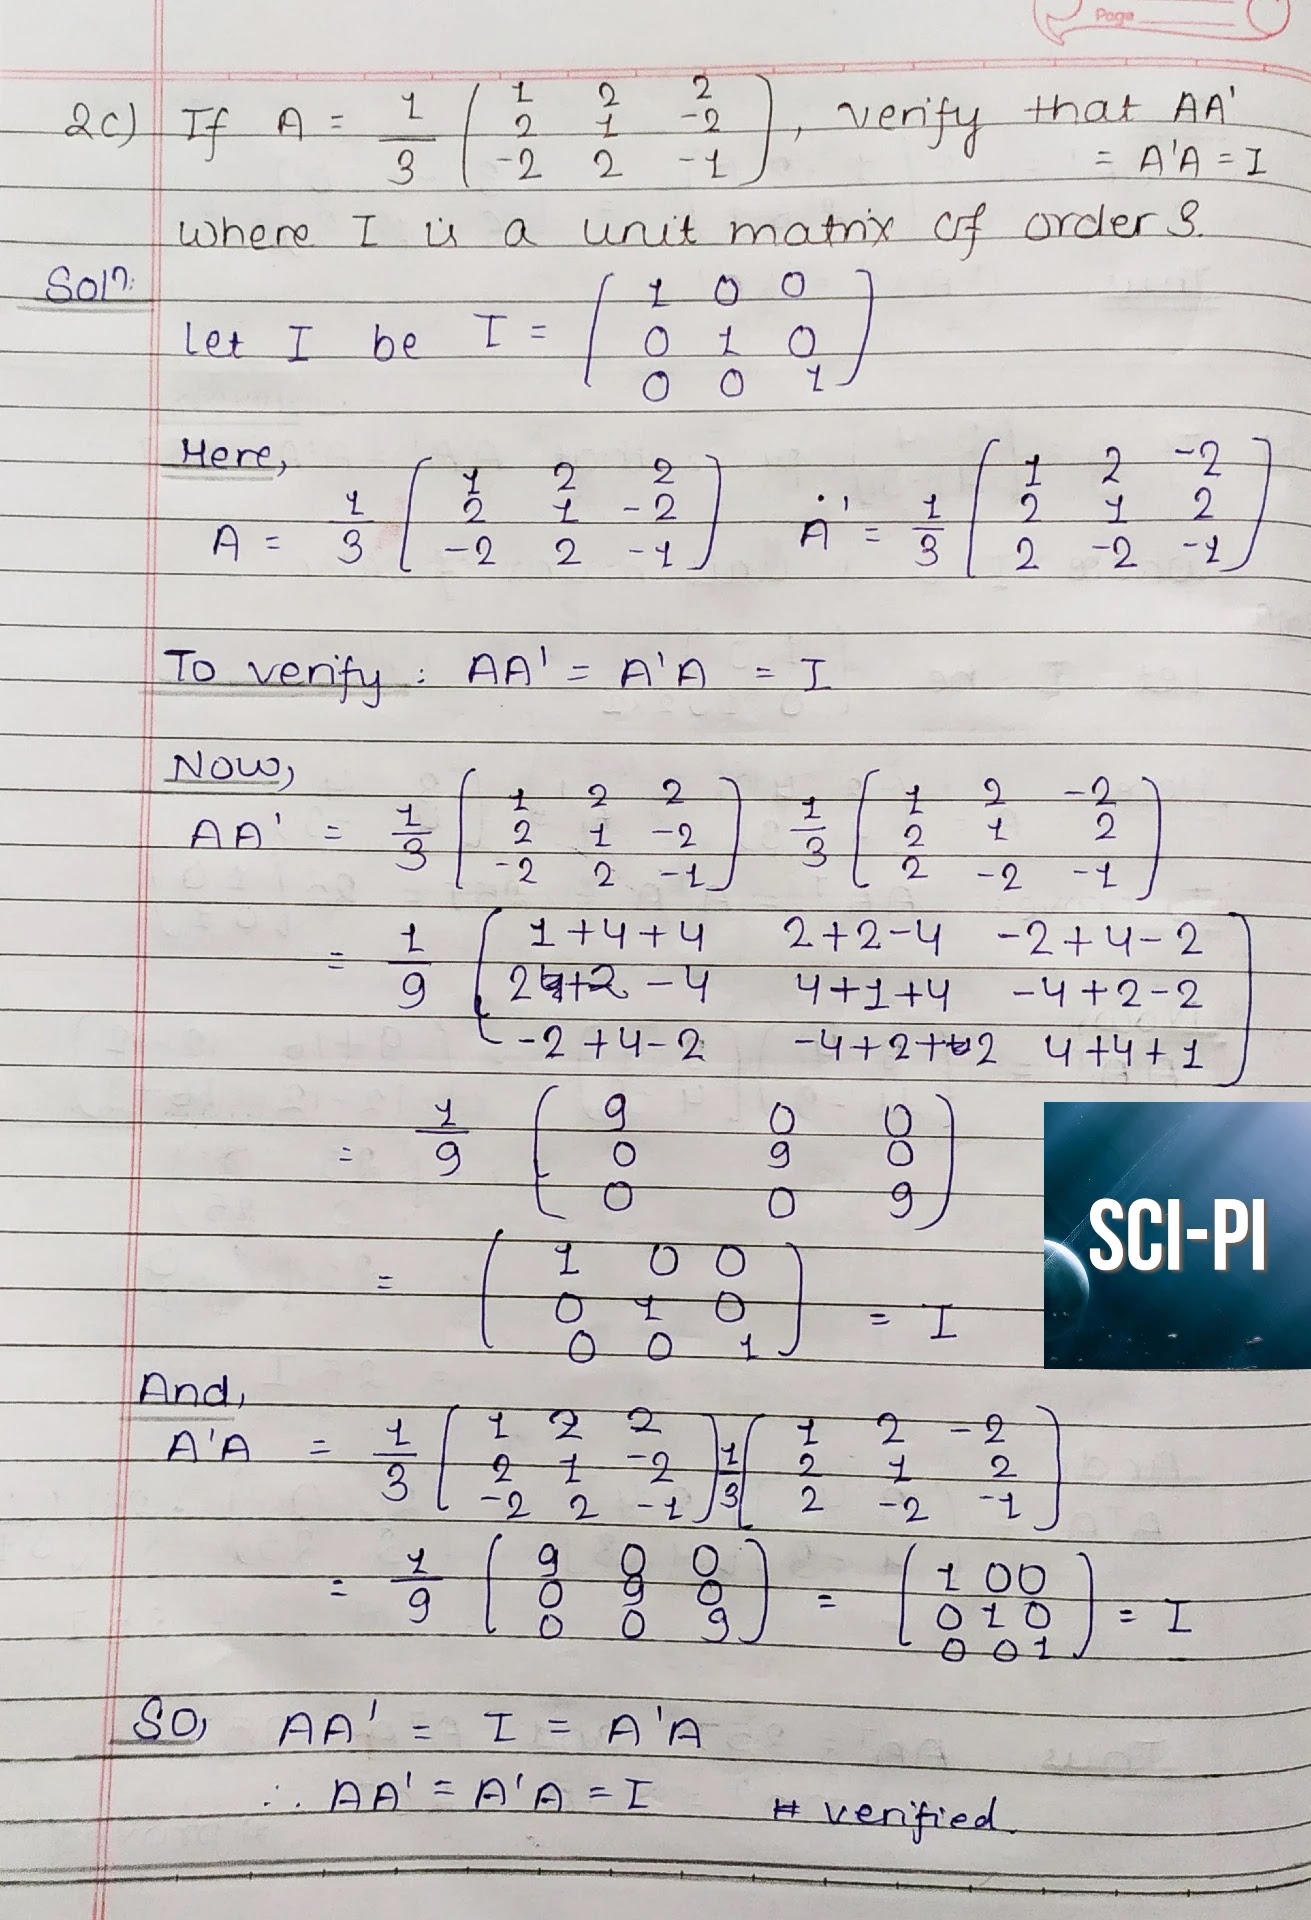 Page
2c) If A = 1/3 ( 1 2 2 ; 2 1 -2 ; -2 2 -1 ), verify that AA'
= A'A = I
where I is a unit matrix of order 3.
Solⁿ:
Let I be I = ( 1 0 0 ; 0 1 0 ; 0 0 1 )
Here,
A = 1/3 ( 1 2 2 ; 2 1 -2 ; -2 2 -1 ) A' = 1/3 ( 1 2 -2 ; 2 1 2 ; 2 -2 -1 )
To verify : AA' = A'A = I
Now,
AA' = 1/3 ( 1 2 2 ; 2 1 -2 ; -2 2 -1 ) 1/3 ( 1 2 -2 ; 2 1 2 ; 2 -2 -1 )
= 1/9 ( 1+4+4 2+2-4 -2+4-2 ; 2+2-4 4+1+4 -4+2-2 ; -2+4-2 -4+2+2 4+4+1 )
= 1/9 ( 9 0 0 ; 0 9 0 ; 0 0 9 )
= ( 1 0 0 ; 0 1 0 ; 0 0 1 ) = I
SCI-PI
And,
A'A = 1/3 ( 1 2 2 ; 2 1 -2 ; -2 2 -1 ) 1/3 ( 1 2 -2 ; 2 1 2 ; 2 -2 -1 )
= 1/9 ( 9 0 0 ; 0 9 0 ; 0 0 9 ) = ( 1 0 0 ; 0 1 0 ; 0 0 1 ) = I
SO, AA' = I = A'A
∴ AA' = A'A = I # verified.